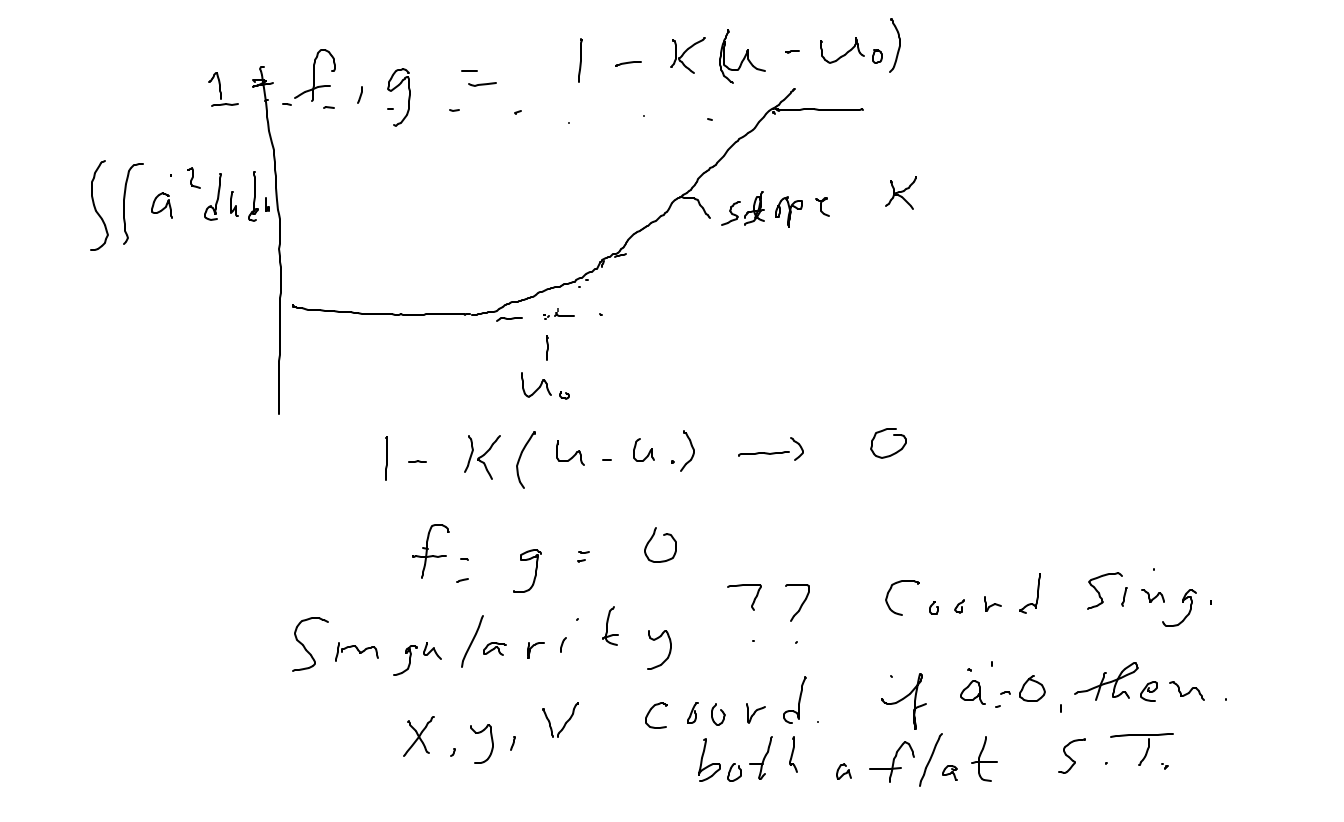 1 + f, g = 1 - K(u - u₀)
∫∫ ȧ² du du
slope K
u₀
1 - K(u - u₀) → 0
f = g = 0
Singularity ?? Coord Sing.
x, y, v coord. if ȧ = 0, then
both a flat S.T.